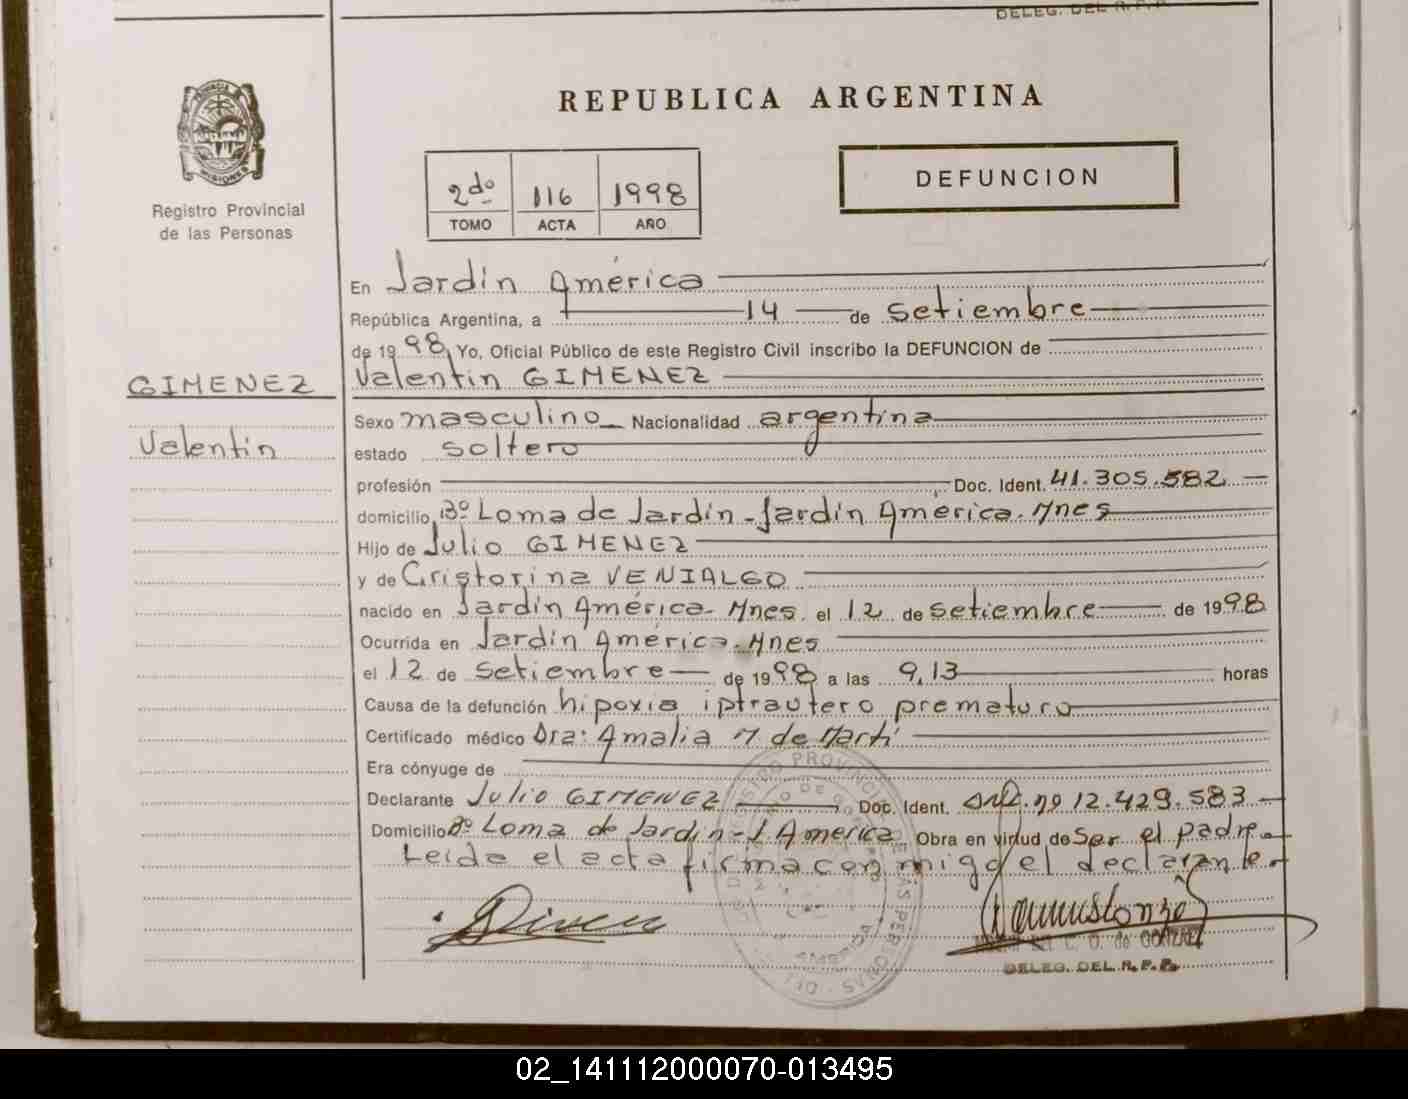 DELEG. DEL R. P. P.
PROVINCIA DE
MISIONES
Registro Provincial
de las Personas
REPUBLICA ARGENTINA
2do 116 1998
TOMO ACTA AÑO
DEFUNCION
En Jardín América
República Argentina, a 14 de setiembre
de 1998 Yo, Oficial Público de este Registro Civil inscribo la DEFUNCION de
GIMENEZ
Valentín GIMENEZ
Valentín
Sexo masculino Nacionalidad argentina
estado soltero
profesión Doc. Ident. 41.305.582
domicilio Bº Loma de Jardín - Jardín América. Mnes
Hijo de Julio GIMENEZ
y de Cristorina VENIALGO
nacido en Jardín América - Mnes. el 12 de setiembre de 1998
Ocurrida en Jardín América. Mnes
el 12 de setiembre de 1998 a las 9,13 horas
Causa de la defunción hipoxia iptrautero prematuro
Certificado médico Dra: Amalia M de Martí
Era cónyuge de
Declarante Julio GIMENEZ Doc. Ident. DNI. nº 12.429.583
Domicilio Bº Loma de Jardín - J. América Obra en virtud de ser el padre
Leida el acta firma con migo el declarante
DELEG. DEL R. P. P.
02_141112000070-013495